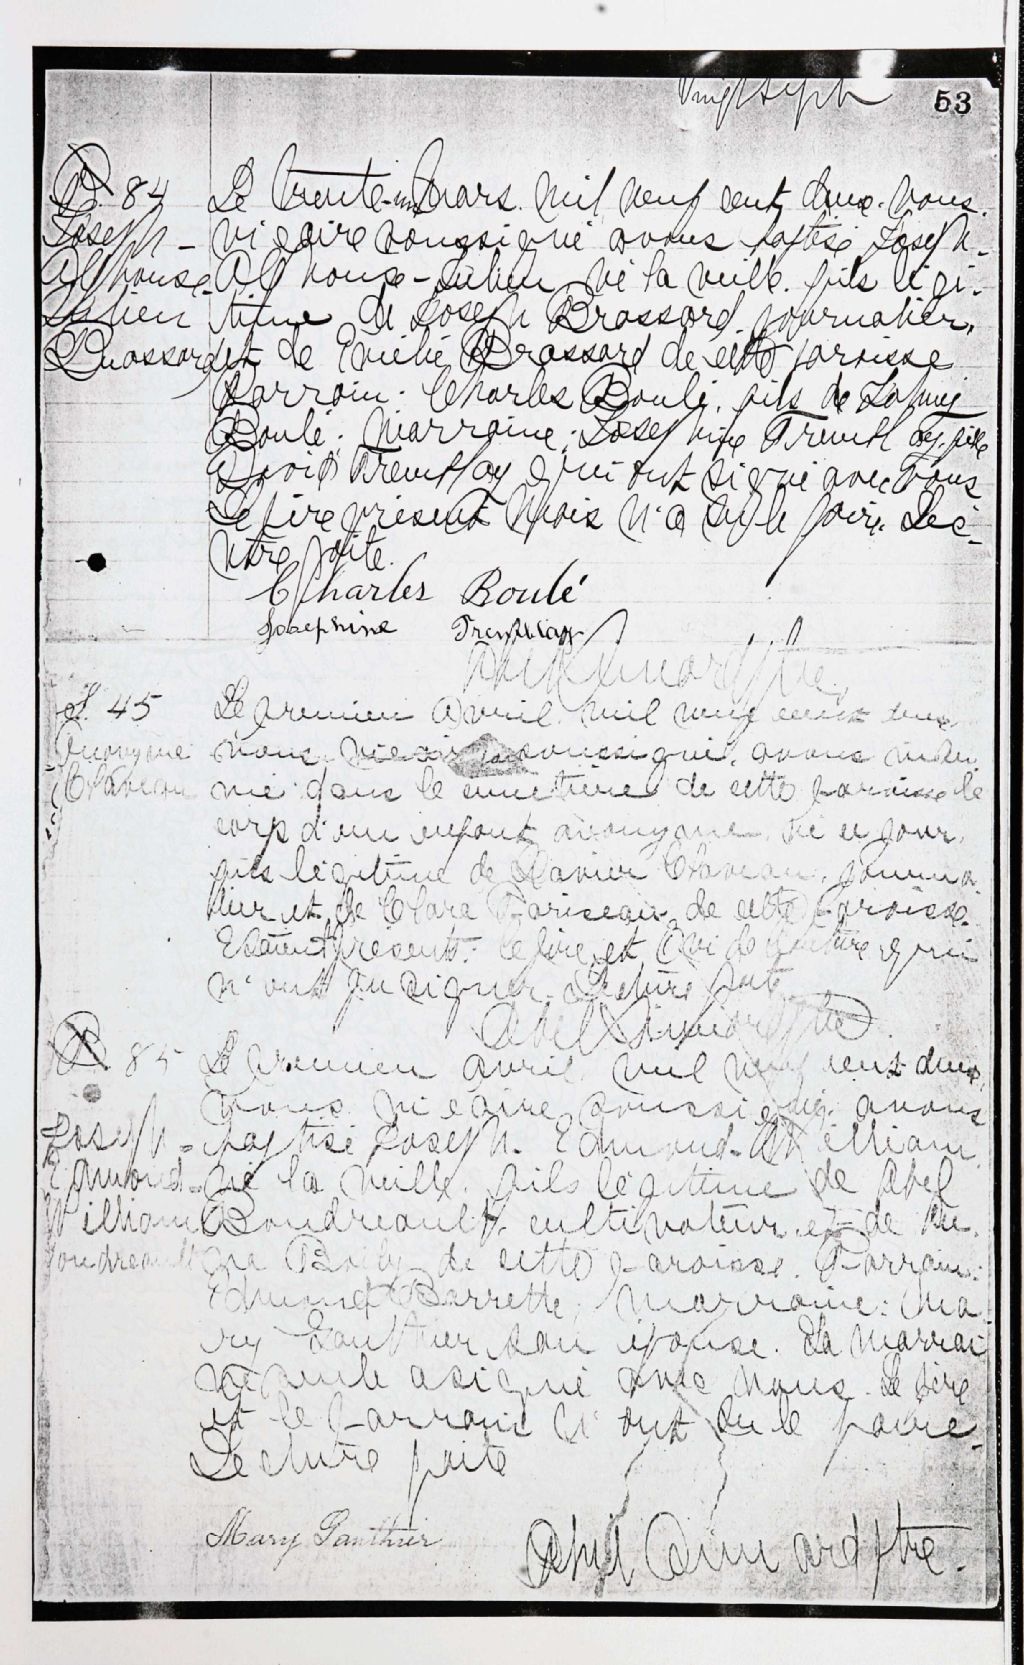 Vingt sept
53
B. 84
Joseph-
Alphonse-
Julien
Brassard
Le trente-un Mars mil neuf cent deux nous
vicaire soussigné avons baptisé Joseph-
Alphonse-Julien né la veille fils légi-
time de Joseph Brassard journalier,
et de Brassard de cette paroisse
Parrain: Charles Boulé, fils de
Boulé; Marraine: Josephine Tremblay, fille
David Tremblay qui ont signé avec nous
Le père présent mais n'a su le faire. Lec-
ture faite.
Charles Boulé
Josephine Tremblay
Abel Simard ptre.
S. 45
Anonyme
Claveau
Le premier Avril mil neuf cent deux
nous, vicaire soussigné, avons inhu-
mé dans le cimetière de cette paroisse le
corps d'un enfant anonyme, né ce jour,
fils légitime de Xavier Claveau, journa-
lier et de Clara Pariseau, de cette paroisse.
Etaient présents: le père et qui
n'ont pu signer. Lecture faite
Abel Simard ptre
B. 85
Joseph-
Edmond-
William
Boudreault
Le premier avril mil neuf cent deux,
nous vicaire soussigné avons
baptisé Joseph-Edmond-William
né la veille, fils légitime de Abel
Boudreault, cultivateur et de
Boily de cette paroisse. Parrain:
Edmond Barrette; Marraine: Ma-
ry Gauthier son épouse. La marrai-
ne seule a signé avec nous. Le père
et le parrain n'ont su le faire.
Lecture faite
Mary Gauthier
Abel Simard ptre.